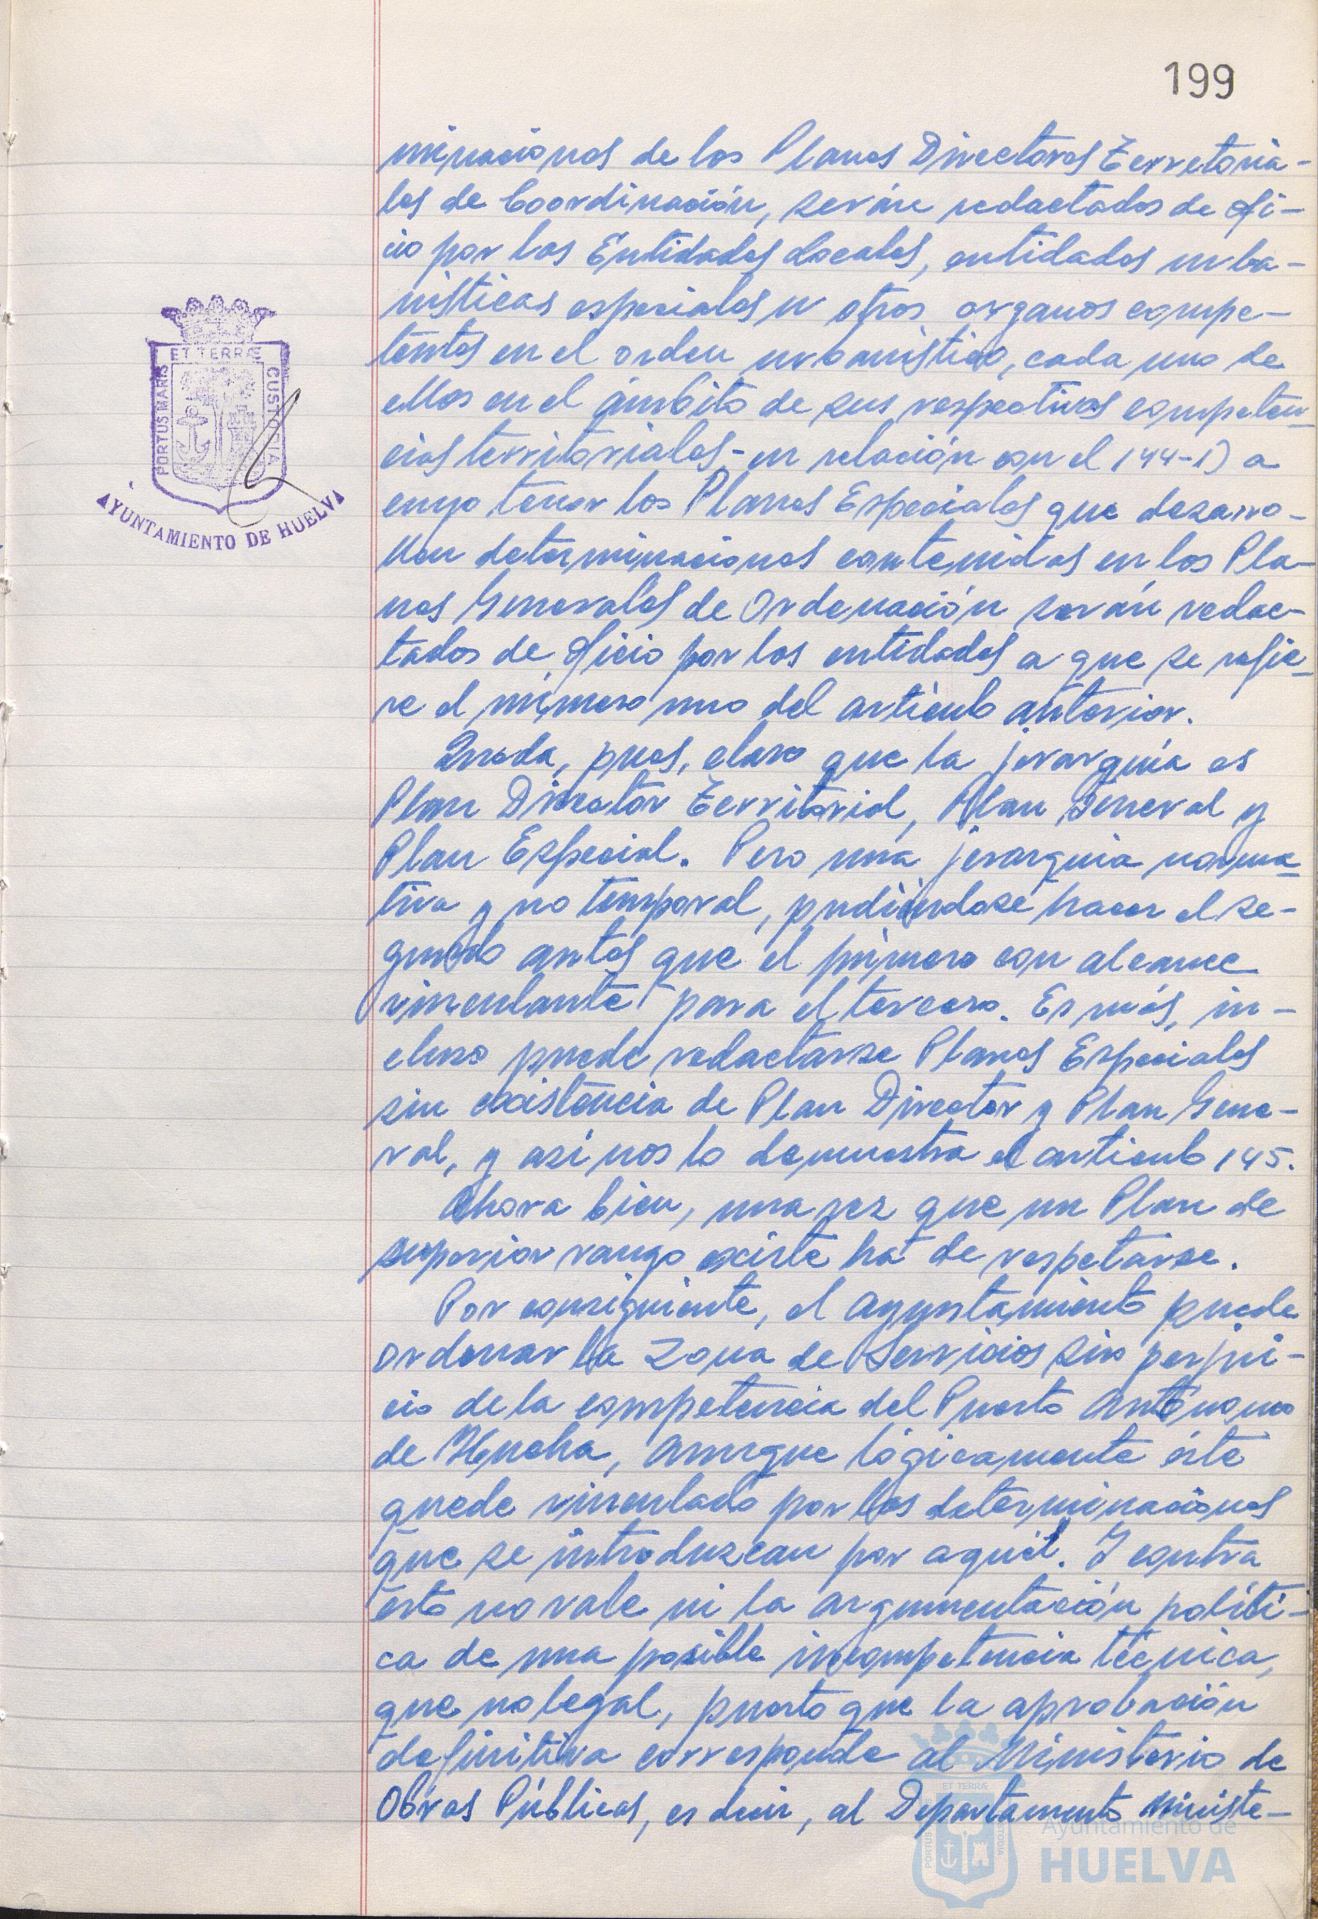 199
minaciones de los Planes Directores Territoria-
les de Coordinación, serán redactados de ofi-
cio por las Entidades Locales, entidades urba-
nísticas especiales u otros organos compe-
tentes en el orden urbanístico, cada uno de
ellos en el ámbito de sus respectivas competen-
cias territoriales- en relación con el 144-1) a
cuyo tenor los Planes Especiales que desarro-
llen determinaciones contenidas en los Pla-
nes Generales de Ordenación serán redac-
tados de oficio por las entidades a que se refie-
re el número uno del artículo anterior.
Queda, pues, claro que la jerarquía es
Plan Director Territorial, Plan General y
Plan Especial. Pero una jerarquia norma-
tiva y no temporal, pudiéndose hacer el se-
gundo antes que el primero con alcance
vinculante para el tercero. Es más, in-
cluso puede redactarse Planes Especiales
sin existencia de Plan Director y Plan Gene-
ral, y así nos lo demuestra el artículo 145.
Ahora bien, una vez que un Plan de
superior rango existe ha de respetarse.
Por consiguiente, el Ayuntamiento puede
ordenar la Zona de Servicios sin perjui-
cio de la competencia del Puerto Autónomo
de Huelva, aunque lógicamente éste
quede vinculado por las determinaciones
que se introduzcan por aquél. Y contra
esto no vale ni la argumentación políti-
ca de una posible incompetencia técnica,
que no legal, puesto que la aprobación
definitiva corresponde al Ministerio de
Obras Públicas, es decir, al Departamento Ministe-
PORTUS MARIS ET TERRÆ CUSTODIA
AYUNTAMIENTO DE HUELVA
Ayuntamiento de
HUELVA